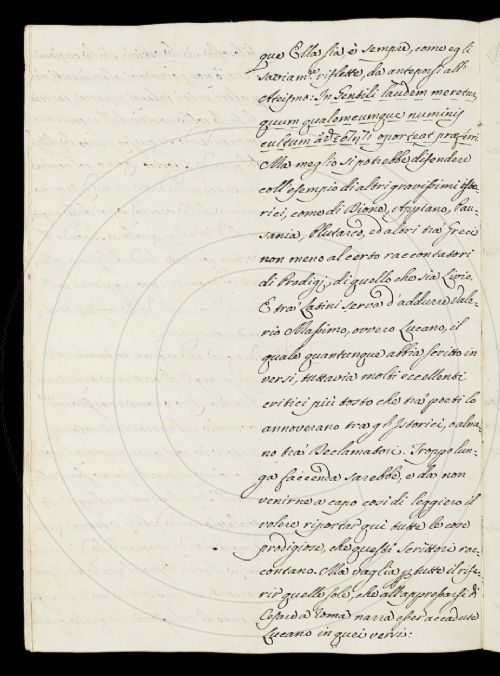 que Ella sia è sempre, come egli
saviam.te riflette, da anteporsi all'
Ateismo: In Gentili laudem meretur,
quum qualemcumque numinis
cultum oporteat præferri.
Ma meglio si potrebbe difendere
coll'esempio di altri gravissimi isto-
rici, come di Dione, Appiano, Pau-
sania, Plutarco, ed altri tra' Greci
non meno al certo raccontatori
di Prodigj, di quello che sia Livio.
E tra' Latini serva d'addurre Vale-
rio Massimo, ovvero Lucano, il
quale quantunque abbia scritto in
versi, tuttavia molti eccellenti
critici più tosto che tra' poeti lo
annoverano tra gl'Istorici, o alme-
no tra' Declamatori. Troppo lun-
ga facenda sarebbe, e da non
venirne a capo così di leggiero il
volere riportar quì tutte le cose
prodigiose, che questi scrittori rac-
contano. Ma vaglia p tutte il rife-
rir quelle sole, che all'appressarsi di
Cesare a Roma narra esser accadute
Lucano in quei versi: